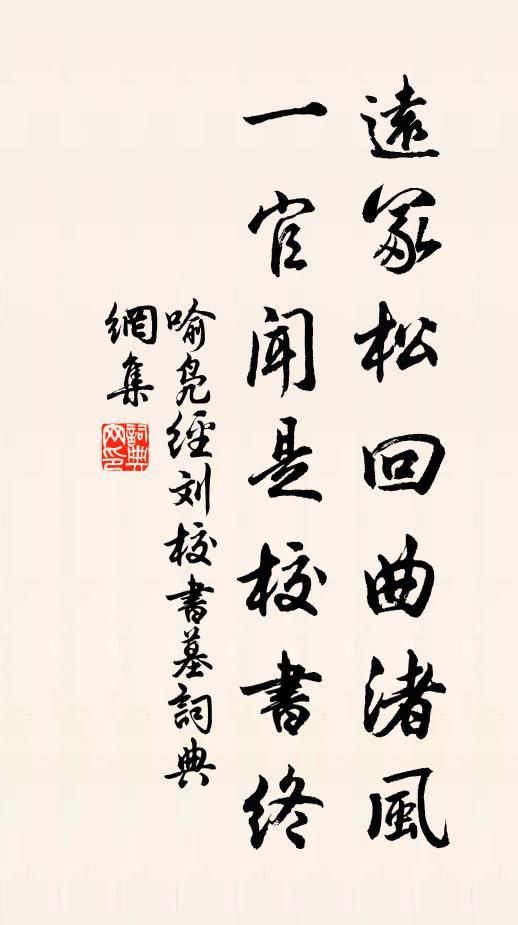 遠冢松回曲渚風
一官聞是校書終
喻鳧經刘校書墓詞典
網集
詞典
网印